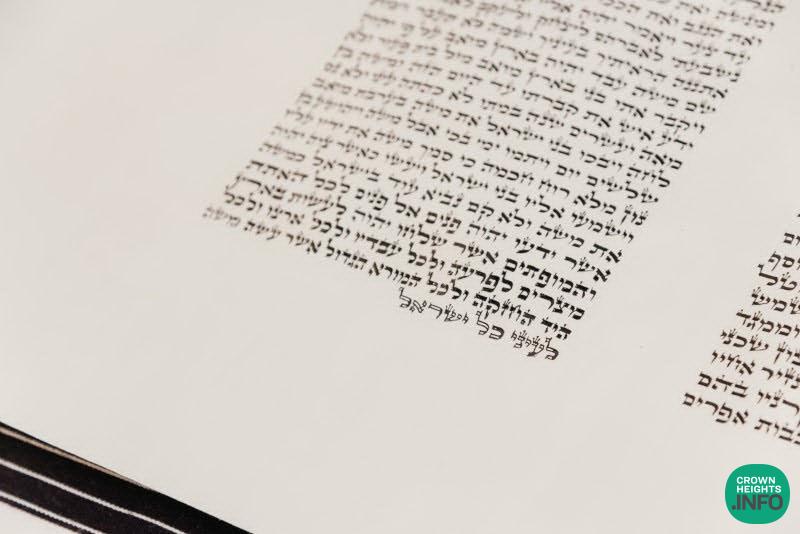 הנגב ואת
עד צער ויאמר יהוה
נשבעתי לאברהם ליצחק
אתננה הראיתיך בעיניך
שם משה עבד יהוה בארץ מואב על פי יהוה
ויקבר אתו בגי בארץ מואב מול בית פעור ולא
ידע איש את קברתו עד היום הזה ומשה בן
מאה ועשרים שנה במתו לא כהתה עינו ולא נס
לחה ויבכו בני ישראל את משה בערבת מואב
שלשים יום ויתמו ימי בכי אבל משה ויהושע בן
נון מלא רוח חכמה כי סמך משה את ידיו עליו
וישמעו אליו בני ישראל ויעשו כאשר צוה יהוה
את משה ולא קם נביא עוד בישראל כמשה
אשר ידעו יהוה פנים אל פנים לכל האתת
והמופתים אשר שלחו יהוה לעשות בארץ
מצרים לפרעה ולכל עבדיו ולכל ארצו ולכל
היד החזקה ולכל המורא הגדול אשר עשה משה
לעיני כל ישראל
טל
שמש
וממגד
שכני
אחיו
בהם
אפרים
CROWN
HEIGHTS
.INFO